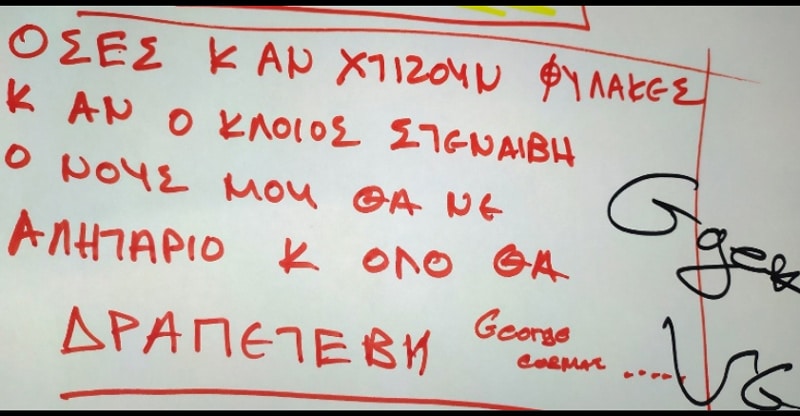 ΟΣΕΣ Κ ΑΝ ΧΤΙΖΟΥΝ ΦΥΛΑΚΕΣ
Κ ΑΝ Ο ΚΛΟΙΟΣ ΣΤΕΝΑΙΒΗ
Ο ΝΟΥΣ ΜΟΥ ΘΑ ΝΕ
ΑΛΗΤΑΡΙΟ Κ ΟΛΟ ΘΑ
ΔΡΑΠΕΤΕΒΗ
George
Ggek